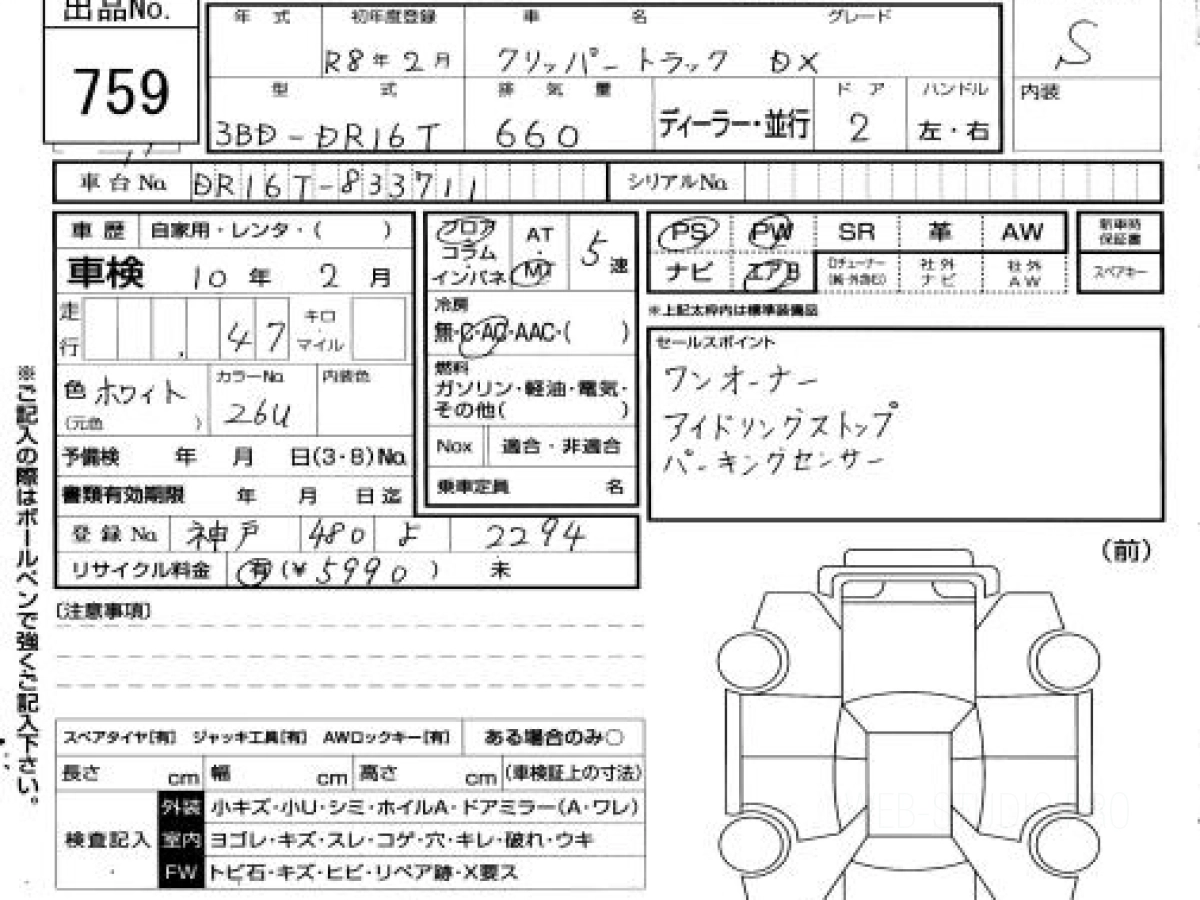 出品No.
759
年 式 初年度登録 車 名 グレード
R8年 2月 クリッパートラック DX
S
型 式 排 気 量 ディーラー・並行 ド ア ハンドル 内装
3BD-DR16T 660 2 左・右
車台No. DR16T-833711 シリアルNo.
車歴 自家用・レンタ・( )
車検 10年 2月
走行 47 キロ・マイル
色 ホワイト カラーNo. 26U 内装色
(元色 )
予備検 年 月 日(3・8)No.
書類有効期限 年 月 日迄
登録No. 神戸 480 よ 2294
リサイクル料金 有(¥5990 ) 未
フロア
コラム
インパネ
AT・MT 5速
冷房
無・C・AC・AAC・( )
燃料
ガソリン・軽油・電気・
その他( )
Nox 適合・非適合
乗車定員 名
PS PW SR 革 AW 新車時保証書
ナビ エアB Dチューナー 社外ナビ 社外AW スペアキー
※上記太枠内は標準装備品
セールスポイント
ワンオーナー
アイドリングストップ
パーキングセンサー
(前)
※ご記入の際はボールペンで強くご記入下さい。
(注意事項)
スペアタイヤ[有] ジャッキ工具[有] AWロックキー[有] ある場合のみ○
長さ cm 幅 cm 高さ cm (車検証上の寸法)
検査記入
外装 小キズ・小U・シミ・ホイルA・ドアミラー(A・ワレ)
室内 ヨゴレ・キズ・スレ・コゲ・穴・キレ・破れ・ウキ
FW トビ石・キズ・ヒビ・リペア跡・X要ス